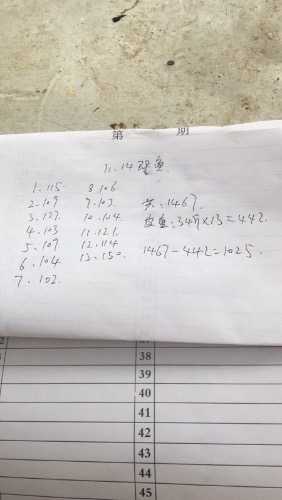 第 期
11.14 鱼
1.115 8.106
2.109 9.103
3.127 10.104
4.103 11.121
5.109 12.114
6.104 13.150
7.102
共:1467
34斤×13=442
1467-442=1025
38
39
40
41
42
43
44
45